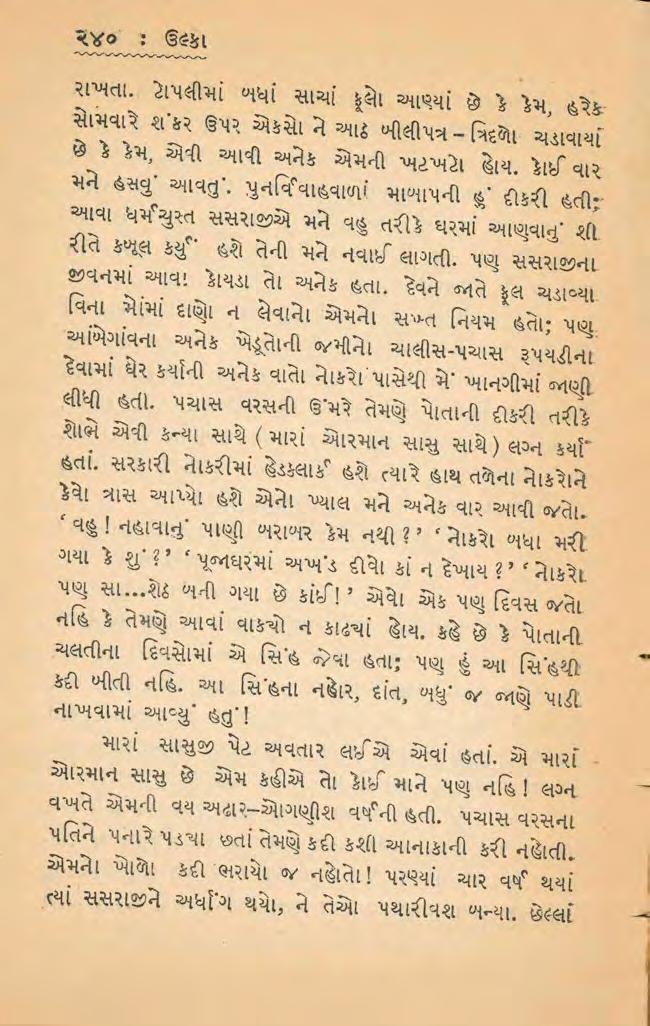 ૨૪૦ : ઉલ્કા
રાખતા. ટોપલીમાં બધાં સાચાં ફૂલો આણ્યાં છે કે કેમ, હરેક
સોમવારે શંકર ઉપર એકસો ને આઠ બીલીપત્ર – ત્રિદળો ચડાવાયાં
છે કે કેમ, એવી આવી અનેક એમની ખટખટો હોય. કોઈ વાર
મને હસવું આવતું. પુનર્વિવાહવાળાં માબાપની હું દીકરી હતી;
આવા ધર્મચુસ્ત સસરાજીએ મને વહુ તરીકે ઘરમાં આણવાનું શી
રીતે કબૂલ કર્યું હશે તેની મને નવાઈ લાગતી. પણ સસરાજીના
જીવનમાં આવા કોયડા તો અનેક હતા. દેવને જાતે ફૂલ ચડાવ્યા
વિના મોંમાં દાણો ન લેવાનો એમનો સખ્ત નિયમ હતો; પણ
આંબેગાંવના અનેક ખેડૂતોની જમીનો ચાલીસ-પચાસ રૂપયડીના
દેવામાં ઘેર કર્યાની અનેક વાતો નોકરો પાસેથી મેં ખાનગીમાં જાણી
લીધી હતી. પચાસ વરસની ઉંમરે તેમણે પોતાની દીકરી તરીકે
શોભે એવી કન્યા સાથે ( મારાં ઓરમાન સાસુ સાથે ) લગ્ન કર્યાં
હતાં. સરકારી નોકરીમાં હેડક્લાર્ક હશે ત્યારે હાથ તળેના નોકરોને
કેવો ત્રાસ આપ્યો હશે એનો ખ્યાલ મને અનેક વાર આવી જતો.
‘ વહુ ! નહાવાનું પાણી બરાબર કેમ નથી ? ’ ‘ નોકરો બધા મરી
ગયા કે શું ? ’ ‘ પૂજાઘરમાં અખંડ દીવો કાં ન દેખાય ? ’ ‘ નોકરો
પણ સા...શેઠ બની ગયા છે કાંઈ ! ’ એવો એક પણ દિવસ જતો
નહિ કે તેમણે આવાં વાક્યો ન કાઢ્યાં હોય. કહે છે કે પોતાની
ચલતીના દિવસોમાં એ સિંહ જેવા હતા; પણ હું આ સિંહથી
કદી બીતી નહિ. આ સિંહના નહોર, દાંત, બધું જ જાણે પાડી
નાખવામાં આવ્યું હતું !
મારાં સાસુજી પેટ અવતાર લઈએ એવાં હતાં. એ મારાં
ઓરમાન સાસુ છે એમ કહીએ તો કોઈ માને પણ નહિ ! લગ્ન
વખતે એમની વય અઢાર–ઓગણીશ વર્ષની હતી. પચાસ વરસના
પતિને પનારે પડ્યા છતાં તેમણે કદી કશી આનાકાની કરી નહોતી.
એમનો ખોળો કદી ભરાયો જ નહોતો ! પરણ્યાં ચાર વર્ષ થયાં
ત્યાં સસરાજીને અર્ધાંગ થયો, ને તેઓ પથારીવશ બન્યા. છેલ્લાં